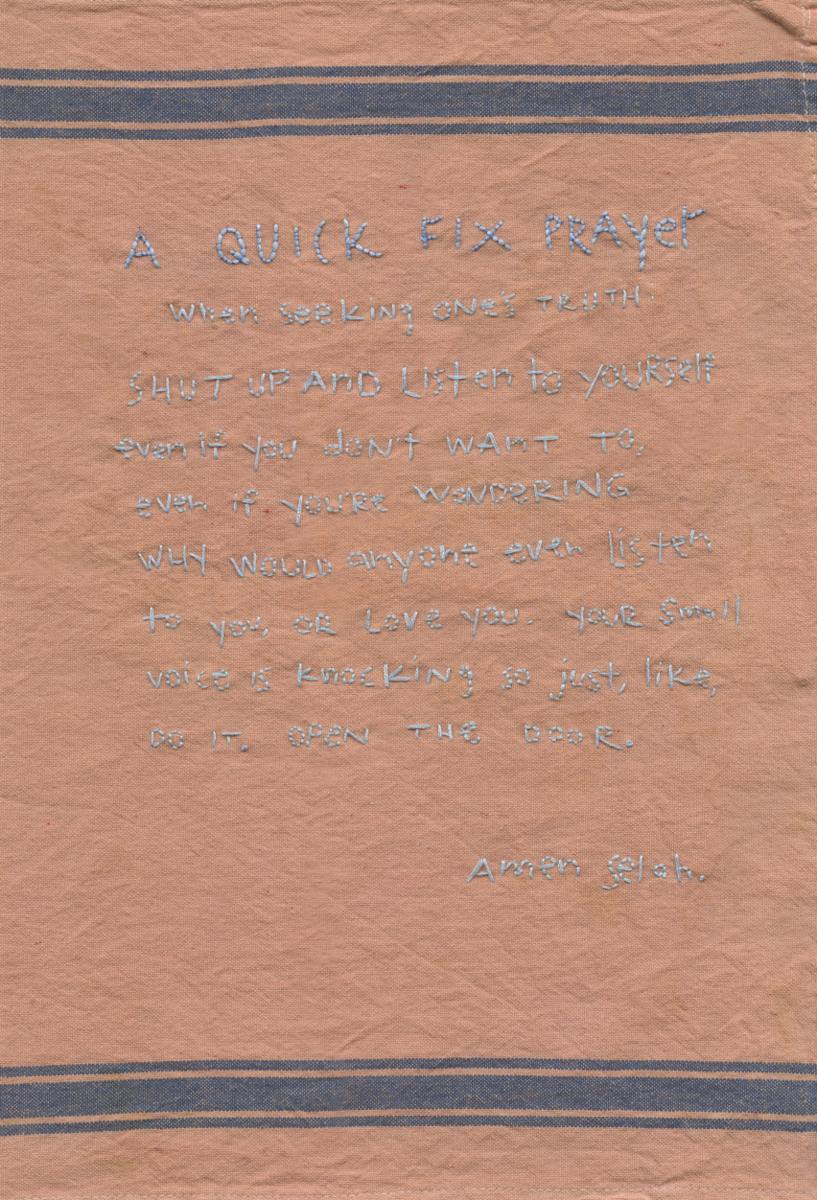 A QUICK FIX PRAyer
when seeking ONE'S TRUTH.
SHUT UP AnD Listen to YOURSelf
even if you don't WAnT TO,
even if you're WONDERING
WHY WOULD anyone even listen
to you, OR LOVE you. YOUR small
voice is knocKing so just, like,
DO IT. OPEN THE DOOR.
Amen selah.